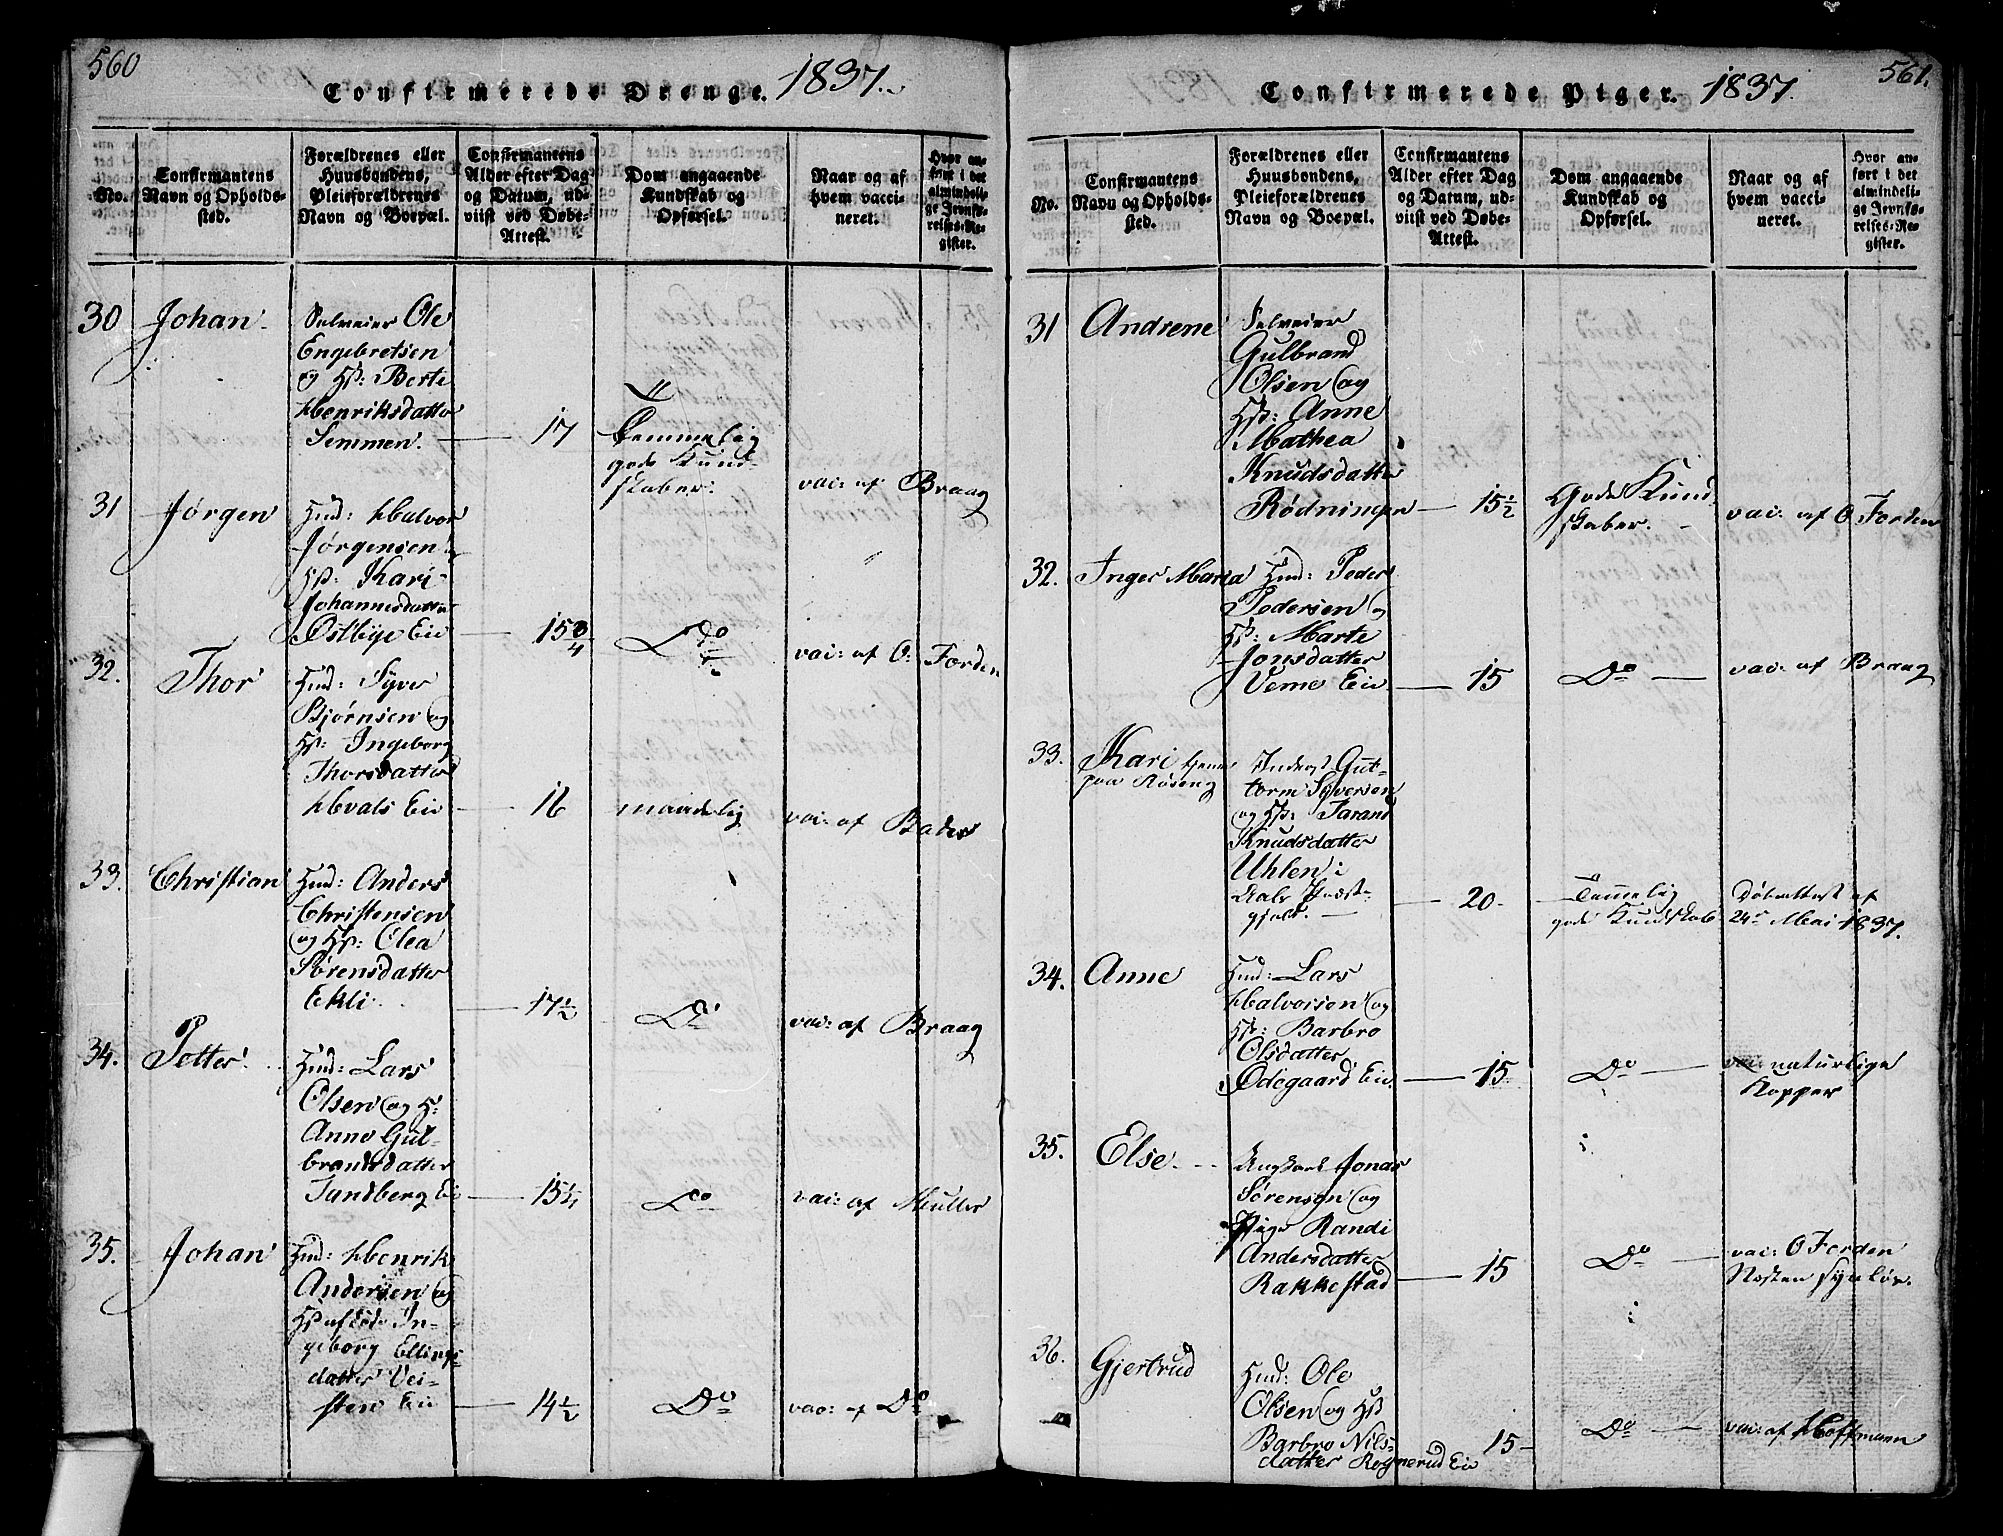 560
Confirmerede Drenge. 1837.
No.
Confirmantens
Navn og Opholds-
sted.
Forældrenes eller
Huusbondens,
Pleieforældrenes
Navn og Boepæl.
Confirmantens
Alder efter Dag
og Datum, ud-
viist ved Døbe-
Attest.
Dom angaaende
Kundskab og
Opførsel.
Naar og af
hvem vacci-
neret.
Hvor an-
ført i det
almindeli-
ge Jevnfø-
relses-Re-
gister.
30 Johan
Selveier Ole
Engebretsen
og Hst: Berte
Henriksdatter
Semmen. 17
Temmelig
gode Kund-
skaber.
vac: af Braag
31 Jørgen
Hmd: Halvor
Jørgensen
Hst: Kari
Johannesdatter
Østbye Eie 15 3/4 Do
vac: af O: Forden
32. Thor
Hmd: Syver
Bjørnsen og
Hst: Ingeborg
Thorsdatter
Hvals Eie 16 maadelig vac: af Bader
33. Christian
Hmd: Anders
Christensen
og Hst: Olea
Sørensdatter
Ekli 17 1/2 Do vac: af Braag
34. Petter
Hmd: Lars
Olsen og H:
Anne Gul-
brandsdatter
Sandberg Eie 15 1/4 Do vac: af Muller
35. Johan
Hmd: Henrik
Andersen og
Hst afdøde In-
geborg Ellings-
datter Vei-
sten Eie 14 1/2 Do vac: af Do
561.
Confirmerede Piger. 1837.
No.
Confirmantens
Navn og Opholds-
sted.
Forældrenes eller
Huusbondens,
Pleieforældrenes
Navn og Boepæl.
Confirmantens
Alder efter Dag
og Datum, ud-
viist ved Døbe-
Attest.
Dom angaaende
Kundskab og
Opførsel.
Naar og af
hvem vacci-
neret.
Hvor an-
ført i det
almindeli-
ge Jevnfø-
relses-Re-
gister.
31 Andrene
Selveier
Gulbrand
Olsen og
Hst: Anne
Mathea
Knudsdatter
Rødningen 15 1/2
Gode Kund-
skaber.
vac: af O Forden
32. Inger Maria
Hmd: Peder
Pedersen og
Hst: Marte
Jonsdatter
Verne Eie 15 Do vac: af Braag
33. Kari tjener
paa Røseng
Inderst Gut-
torm Syversen
og Hst: Tarand
Knudsdatter
Uhlen i
Aals Præst-
gjeld. 20
Temmelig
gode Kundskab
Døbeattest af
24de Mai 1837.
34. Anne
Hmd: Lars
Halvorsen og
Hst: Barbro
Olsdatter
Ødegaard Eie 15 Do
vac: naturlige
Kopper
35. Else
Ungkarl Jonas
Sørensen og
Pige Randi
Andersdatter
Rakkestad 15 Do
vac: O Forden
36. Gjertrud
Hmd: Ole
Olsen og Hst
Barbro Nils-
datter Rognerud Eie 15 Do vac: af Hoffmann